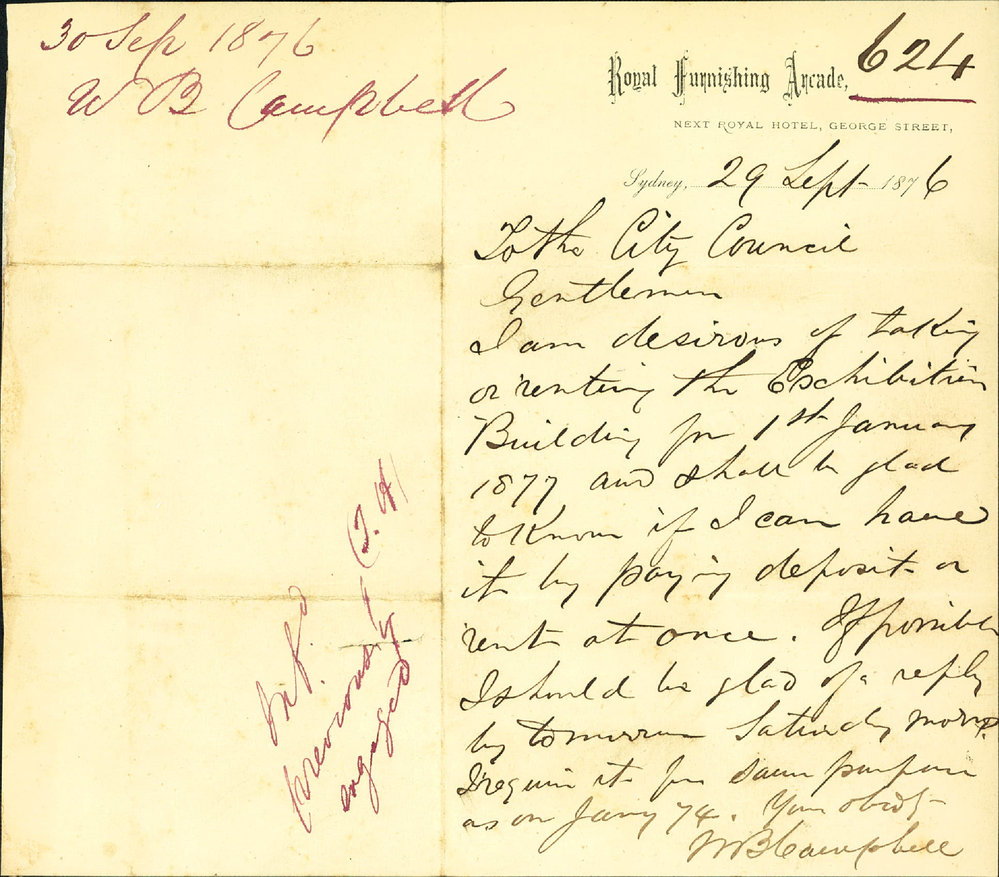 30 Sep 1876
W B Campbell
Royal Furnishing Arcade,
624
NEXT ROYAL HOTEL, GEORGE STREET,
Sydney, 29 Sept 1876
To the City Council
Gentlemen
I am desirous of taking
or renting the Exhibition
Building for 1st January
1877 and shall be glad
to know if I can have
it by paying deposit or
rent at once. If possible
I should be glad of a reply
by tomorrow Saturday morng.
I require it for same purpose
as on Jany 74. Your obedt
W B Campbell
Inf.d
previously
engaged